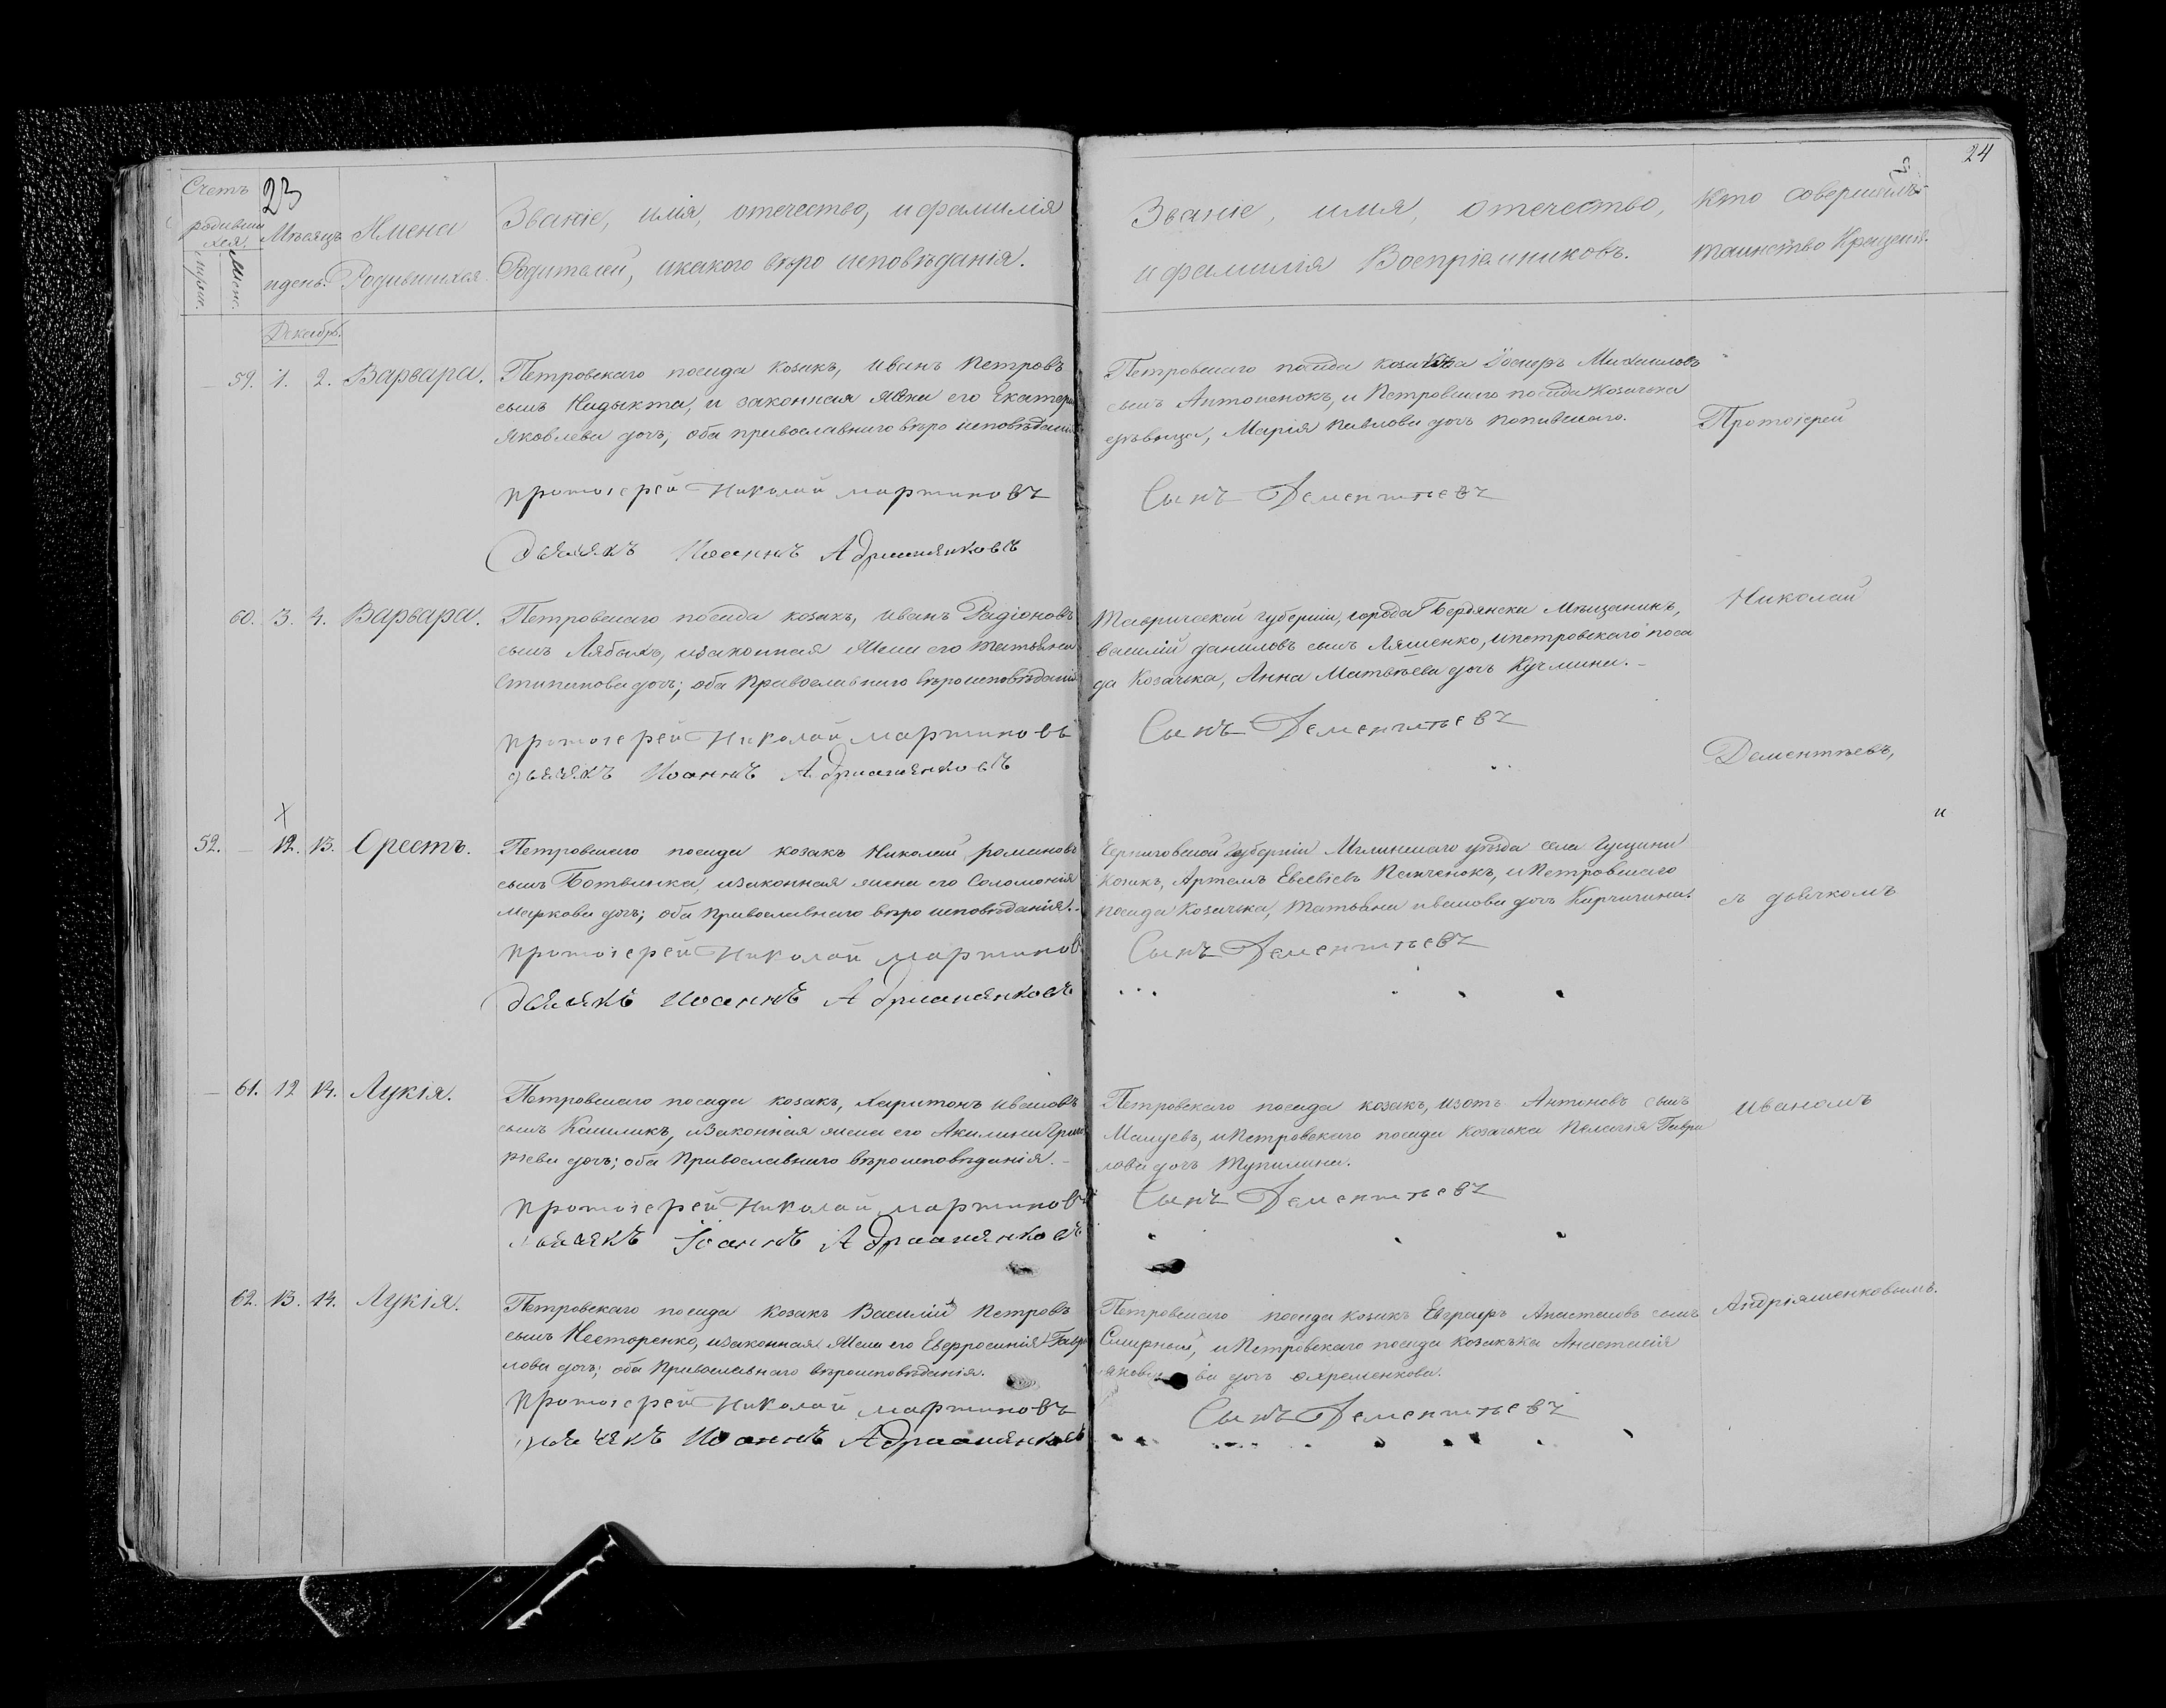 24
23
Счетъ
родивши
хся.
Мѣсяцъ
и день.
Имена
Родившихся
Званіе, имя, отечество, и фамилія
Родителей, и какого вѣро исповѣданія.
Званіе, имя, отечество,
и фамилія Воспріемниковъ.
Кто совершилъ
таинство Крещенія.
Декабрь.
59. 1. 2. Варвара.
Петровскаго посада козакъ, Иванъ Петровъ
сынъ Кидыкта, и законная жена его Екатери
Яковлева дочь, оба православнаго вѣро исповѣданія
протоіерей Николай мартиновъ
дьячякъ Иоаннъ Адрияшянковъ
Петровскаго посада Михаиловъ
сынъ Антоненокъ, и Петровскаго посада козачька
дѣвица, Марія Павлова дочь Попивскаго.
Сынъ Дементьевъ
Протоіерей
60. 3. 4. Варвара.
Петровскаго посада козакъ, Иванъ Радіоновъ
сынъ Лябахъ, и законная жена его Татьяна
Стипанова дочь; оба Православнаго вѣроисповѣданія
протоіерей Николай мартиновъ
дьячякъ Иоаннъ Адрияшянковъ
Таврической губерніи, города Бердянска Мѣщанинъ,
василій даниловъ сынъ Ляшенко, и петровскаго поса
да Козачька, Анна Матвѣева дочь Кучмина.
Сынъ Дементьевъ
Николай
Дементьевъ,
52. 12. 13. Орестъ.
Петровскаго посада козакъ Николай романовъ
сынъ Ботвинка, и законная жена его Соломонія
Маркова дочь; оба Православнаго вѣро исповѣданія.
протоіерей Николай мартинов
дьячякъ Иоаннъ Адрияшянковъ
Черниговской губерніи Мглинскаго уѣзда села Гущини
Козакъ, Артемъ Евсевіевъ Панченокъ, и Петровскаго
посада Козачька, Татьяна иванова дочь Кирчигина.
Сынъ Дементьевъ
съ дьячкомъ
61. 12 14. Лукія.
Петровскаго посада козакъ, Харитонъ Ивановъ
сынъ Кашликъ, и законная жена его Акилина Григо
рьева дочь; оба Православнаго вѣроисповѣданія.
протоіерей Николай мартиновъ
дьячякъ Іоаннъ Адрияшянковъ
Петровскаго посада козакъ, Изотъ Антоновъ сынъ
Мацуевъ, и Петровскаго посада козачька Пелагія Гаври
лова дочь Тупилина.
Сынъ Дементьевъ
Иваномъ
62. 13. 14. Лукія.
Петровскаго посада козакъ Василій Петровъ
сынъ Несторенко, и законная жена его Евфросинія Гаври
лова дочь; оба Православнаго вѣроисповѣданія.
протоіерей Николай мартиновъ
дьячякъ Иоаннъ Адрияшянковъ
Петровскаго посада козакъ Евграфъ Анастасовъ сынъ
Смирный, и Петровскаго посада козачька Анастасія
дочь Ахременкова.
Сынъ Дементьевъ
Андріяшенковымъ.